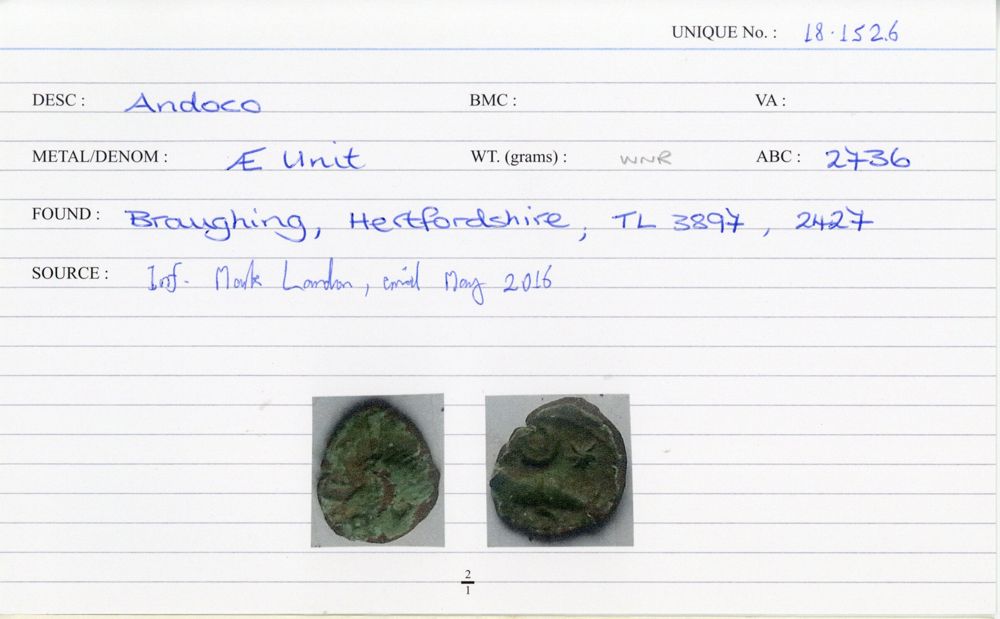 UNIQUE No. : 18.1526
DESC : Andoco BMC : VA :
METAL/DENOM : Æ Unit WT. (grams) : WNR ABC : 2736
FOUND : Braughing, Hertfordshire, TL 3897, 2427
SOURCE : Inf. Mark London, May 2016
2
1